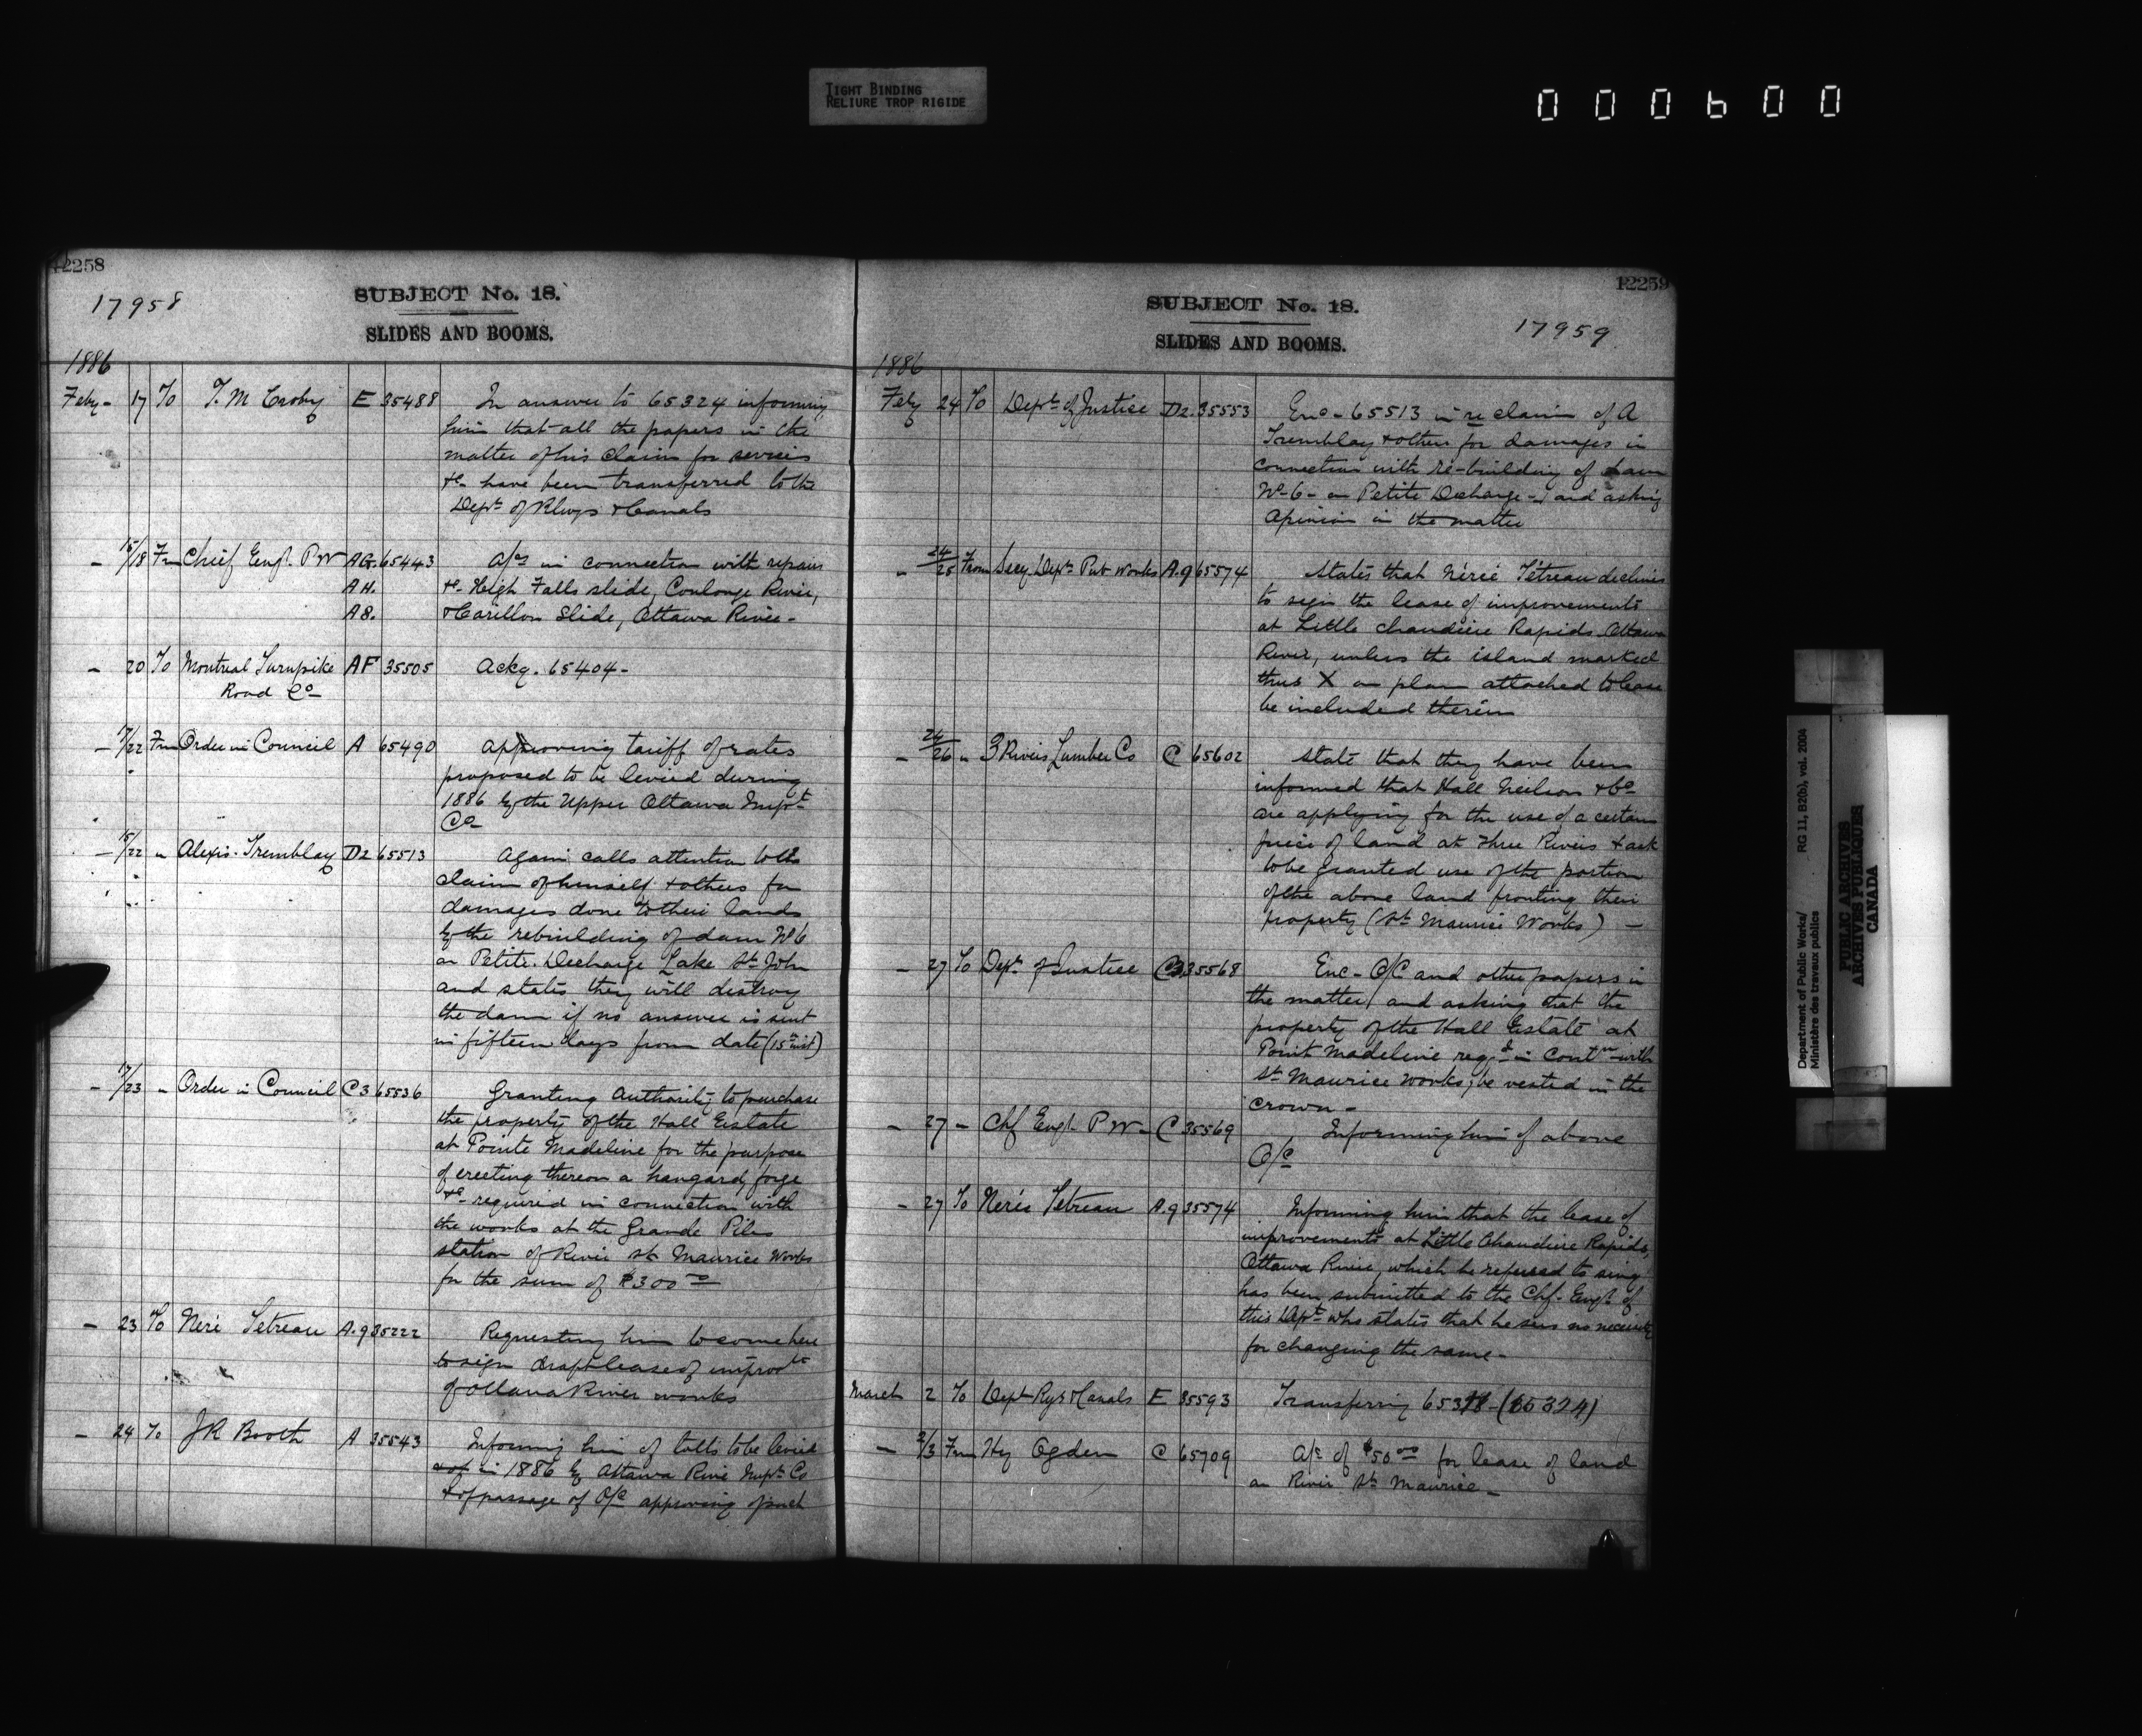 TIGHT BINDING
RELIURE TROP RIGIDE
000600
12258
17958
SUBJECT No. 18.
SLIDES AND BOOMS.
1886
Feby - 17 To T. M Crosby E 35488 In answer to 65324 informing
him that all the papers in the
matter of his claim for services
&c - have been transferred to the
Dept of Rlwys & Canals
- 15/18 Fm Chief Engr. PW AG. 65443 A/cs in connection with repairs
AH. &c - High Falls slide, Coulonge River,
A8. & Carillon Slide, Ottawa River -
- 20 To Montreal Turnpike AF 35505 Ackg. 65404 -
Road Co -
- 17/22 Fm Order in Council A 65490 approving tariff of rates
proposed to be levied during
1886 by the Upper Ottawa Impt
Co -
- 15/22 " Alexis Tremblay D2 65513 Again calls attention to the
claim of himself & others for
damages done to their lands
by the rebuilding of dam No 6
on Petite Decharge Lake St John
and states they will destroy
the dam if no answer is sent
in fifteen days from date (15th inst)
- 17/23 " Order in Council C3 65536 Granting Authority to purchase
the property of the Hall Estate
at Pointe Madeline for the purpose
of erecting thereon a hangard, forge
&c - required in connection with
the works at the Grande Piles
station of River St Maurice Works
for the sum of $300 00
- 23 To Neré Tetreau A.9 35222 Requesting him to come here
to sign draft lease of improvts
of Ottawa River works
- 24 To JR Booth A 35543 Informing him of tolls to be levied
in 1886 by Ottawa River Impt Co
& of passage of O/C approving of such
12259
SUBJECT No. 18.
17959
SLIDES AND BOOMS.
1886
Feby 24 To Dept of Justice D2. 35553 Enc - 65513 in re claim of A
Tremblay & others for damages in
connection with re-building of dam
No - 6 - on Petite Decharge - and asking
Opinion in the matter
- 24/25 From Secy. Dept Pub Works A.9 65574 States that Nérée Tétreau declines
to sign the lease of improvements
at Little Chaudiere Rapids Ottawa
River, unless the island marked
thus X on plan attached to lease
be included therein
- 24/26 " 3 Rivers Lumber Co C 65602 State that they have been
informed that Hall Neilson & Co
are applying for the use of a certain
piece of land at Three Rivers & ask
to be granted use of the portion
of the above land fronting their
property (St Maurice Works) -
- 27 To Dept of Justice C3 35568 Enc - O/C and other papers in
the matter, and asking that the
property of the Hall Estate at
Point Madeline reqd in Contn with
St Maurice Works, be vested in the
crown -
- 27 - Chf Engr. P W - C 35569 Informing him of above
O/C
- 27 To Nerée Tetreau A.9 35574 Informing him that the lease of
improvements at Little Chaudiere Rapids,
Ottawa River, which he refused to sing
has been submitted to the Chf. Engr. of
this Dept who states that he sees no necessity
for changing the same -
March 2 To Dept Rys & Canals E 35593 Transferring (65324)
- 2/3 Fm Hy Ogden C 65709 A/c of $50 00 for lease of land
on River St Maurice -
Department of Public Works/ RG 11, B2(b), vol. 2004
Ministère des travaux publics
PUBLIC ARCHIVES
ARCHIVES PUBLIQUES
CANADA